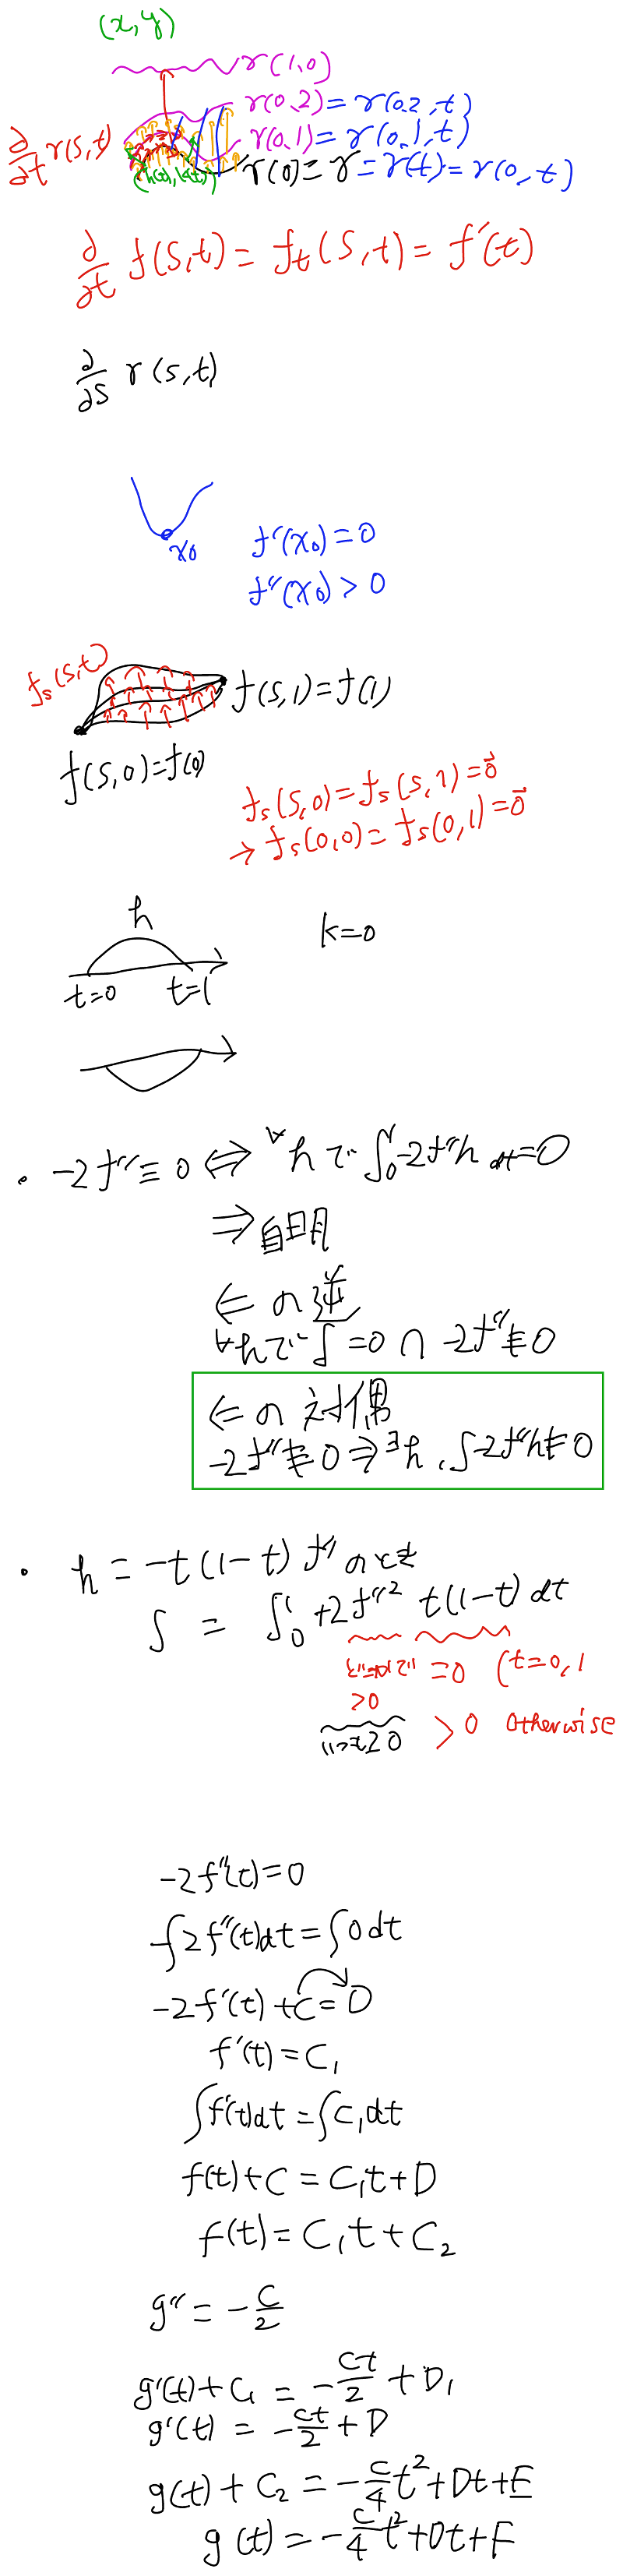 (x, y)
γ(1,0)
γ(0,2) = γ(0.2, t)
γ(0,1) = γ(0.1, t)
∂/∂t γ(s,t)
(h(t), k(t))
γ(0) = γ = γ(t) = γ(0, t)
∂/∂t f(s,t) = f_t(s,t) = f'(t)
∂/∂s γ(s,t)
x₀
f'(x₀) = 0
f''(x₀) > 0
f_s(s,t)
f(s,1) = f(1)
f(s,0) = f(0)
f_s(s,0) = f_s(s,1) = 0⃗
→ f_s(0,0) = f_s(0,1) = 0⃗
h
k=0
t=0 t=1
・ -2f'' ≡ 0 ⇔ ∀h で ∫₀¹ -2f''h dt = 0
⇒ 自明
⇐ の 逆
∀h で ∫ = 0 ∩ -2f'' ≢ 0
⇐ の 対偶
-2f'' ≢ 0 ⇒ ∃h, ∫-2f''h ≠ 0
・ h = -t(1-t) f'' のとき
∫ = ∫₀¹ +2f''² t(1-t) dt
どこかで = 0 (t=0,1
>0
いつも≥0 > 0 otherwise
-2f''(t) = 0
-∫2f''(t)dt = ∫0dt
-2f'(t) + C = D
f'(t) = C₁
∫f'(t)dt = ∫C₁dt
f(t) + C = C₁t + D
f(t) = C₁t + C₂
g'' = -C/2
g'(t) + C₁ = -Ct/2 + D₁
g'(t) = -Ct/2 + D
g(t) + C₂ = -C/4 t² + Dt + E
g(t) = -C/4 t² + Dt + F